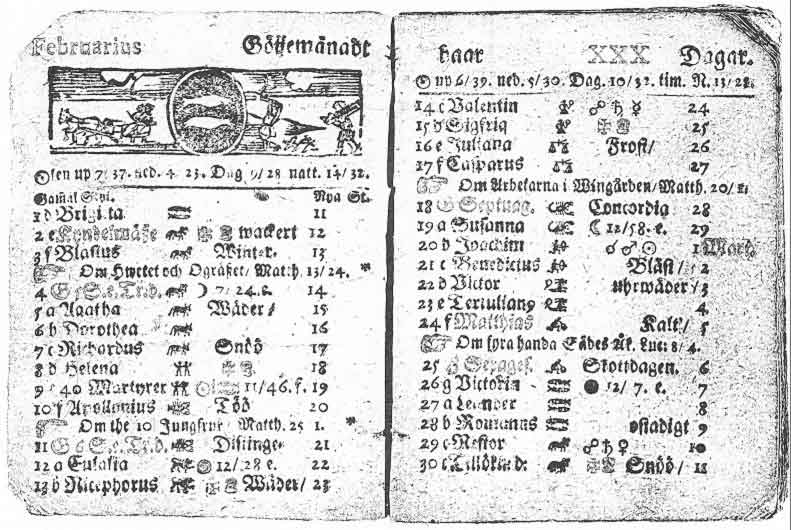 Februarius Göijemånadt
Solen up 7/37. ned. 4. 23. Dag 9/28 natt. 14/32.
Gamal Stijl. Nya St.
1 d Brigitta 11
2 e Kyndelmässe wackert 12
3 f Blasius Winter. 13
Om Hwetet och Ogräset/ Matth. 13/24. *
4 G 5 S. e. Tr. d. 7/24. e. 14
5 a Agatha Wäder/ 15
6 b Dorothea 16
7 c Richardus Snöö 17
8 d Helena 18
9 e 40 Martyrer 11/46. f. 19
10 f Apollonius Töö 20
Om the 10 Jungfrur/ Matth. 25 1. *
11 G 6 S. e. Tr. d. Distinge 21
12 a Eulalia 12/28 e. 22
13 b Nicephorus Wäder/ 23
haar XXX Dagar.
up 6/39. ned. 5/30. Dag. 10/32. tim. N. 13/28.
14 c Valentin ☍ ♄ ☿ 24
15 d Sigfrid 25
16 e Juliana Frost/ 26
17 f Casparus 27
Om Arbetarna i Wingården/ Matth. 20/1.
18 G Septuag. Concordia 28
19 a Susanna ☾ 12/58. e. 29
20 b Joachim ☌ ♂ ☉ 1 Mart.
21 c Benedictus Bläst/ 2
22 d Victor uhrwäder/ 3
23 e Tertulian9 4
24 f Matthias Kalt/ 5
Om fyra handa Sädes Åk. Luc: 8/4.
25 G Sexages. Skottdagen. 6
26 g Victorin ● 12/7. e. 7
27 a Leander 8
28 b Romanus ostadigt 9
29 c Nestor ☍ ♄ ♀ 10
30 c Tillökind: Snöö/ 11